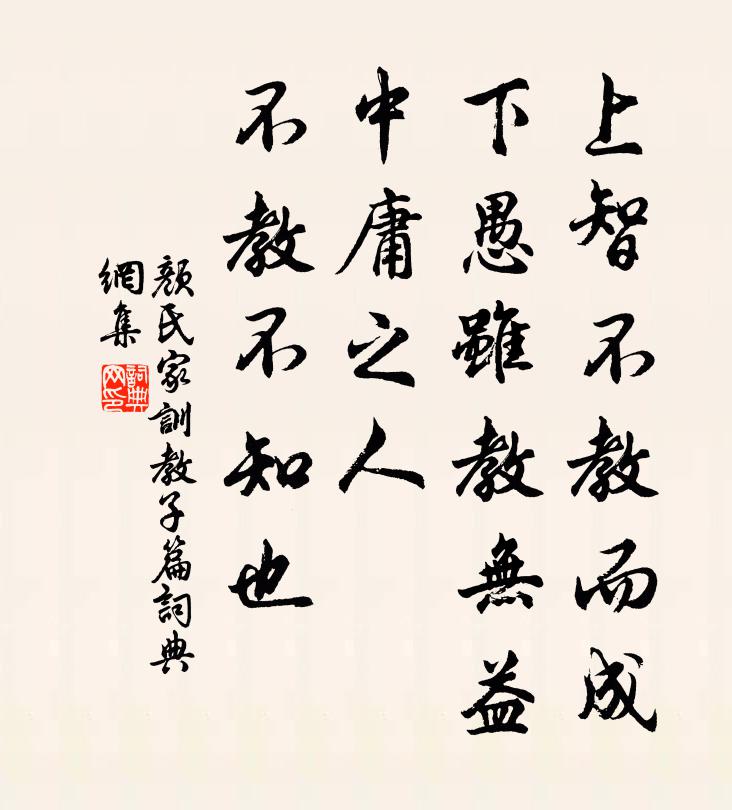 上智不教而成
下愚雖教無益
中庸之人
不教不知也
顏氏家訓教子篇詞典
網集
詞典
网印